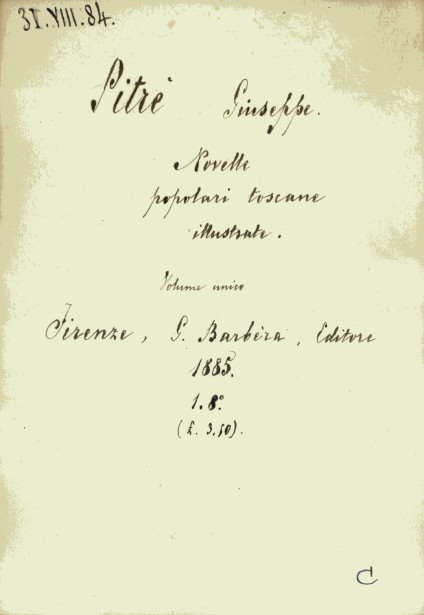 31.VIII.84.
Pitrè Giuseppe.
Novelle
popolari toscane
illustrate.
Volume unico
Firenze, G. Barbèra, Editore
1885.
1.8°.
(£. 3,50).
C